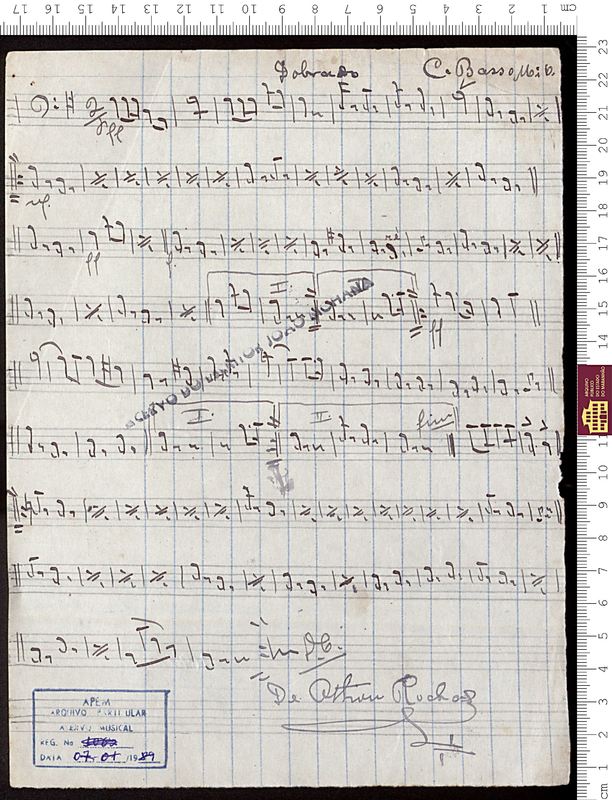 Dobrado C. Basso Mi b.
ff
mf
ff
f
II.
ff
ACERVO DO CANTOR JOÃO MOHANA
I. II. fim
D.C.
De Othon Rocha
APEM
ARQUIVO PARTICULAR
ACERVO MUSICAL
REG. No
DATA 07.01/1989
ARQUIVO
PÚBLICO
DO ESTADO
DO MARANHÃO
17 16 15 14 13 12 11 10 9 8 7 6 5 4 3 2 1 cm
23
22
21
20
19
18
17
16
15
14
13
11
10
9
8
7
6
5
4
3
2
1
cm